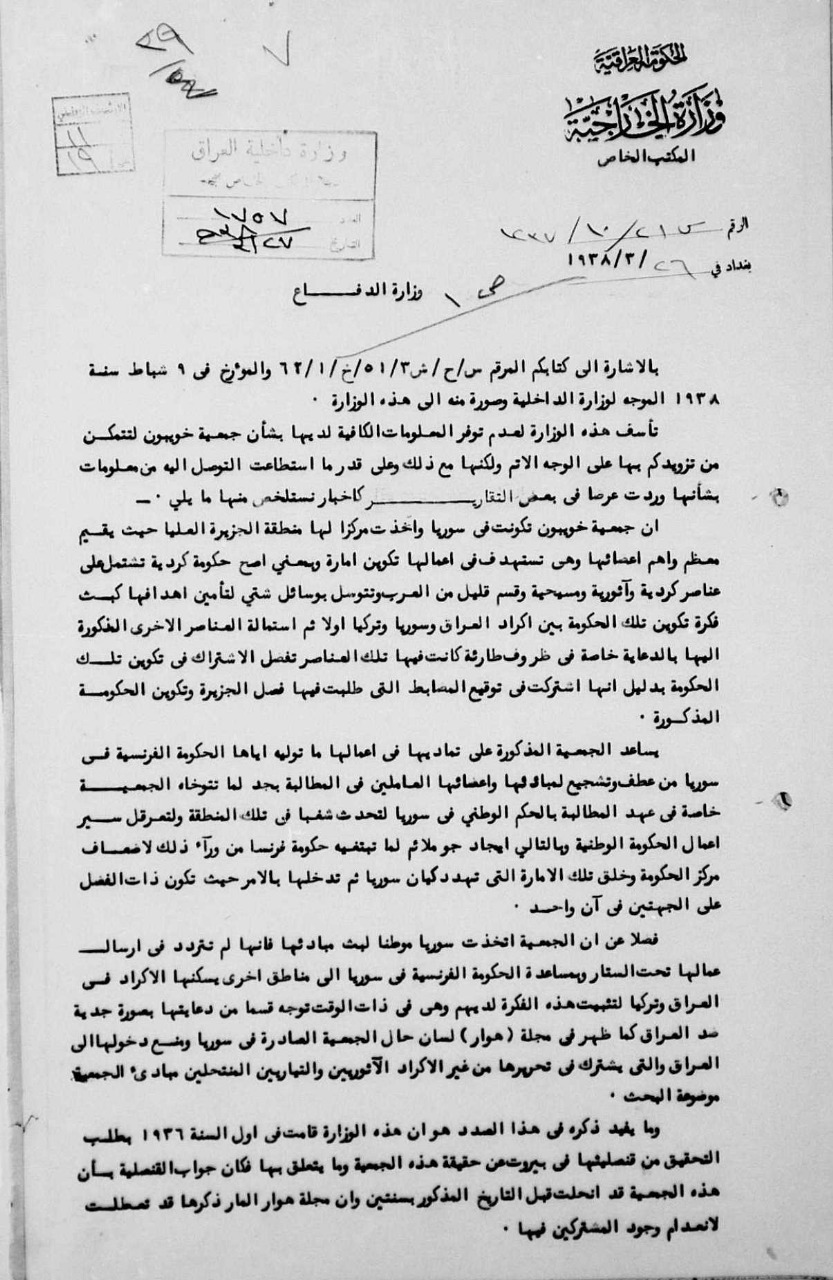 الحكومة العراقية
وزارة الخارجية
المكتب الخاص
وزارة داخلية العراق
العدد ١٧٥٧
التاريخ
الرقم
بغداد في ٢٦/٣/١٩٣٨
وزارة الدفــــاع
بالاشارة الى كتابكم المرقم س/ح/ش٥١/٣/خ/٦٢/١ والمؤرخ فى ٩ شباط سنة
١٩٣٨ الموجه لوزارة الداخلية وصورة منه الى هذه الوزارة ٠
تأسف هذه الوزارة لعدم توفر المعلومات الكافية لديها بشأن جمعية خويبون لتتمكن
من تزويدكم بها على الوجه الاتم ولكنها مع ذلك وعلى قدر ما استطاعت التوصل اليه من معلومات
بشأنها وردت عرضا فى بعض التقاريـــر كاخبار نستلخص منها ما يلي ٠ ــ
ان جمعية خويبون تكونت فى سوريا واخذت مركزا لها منطقة الجزيرة العليا حيث يقيم
معظم واهم اعضائها وهى تستهدف فى اعمالها تكوين امارة وبمعني اصح حكومة كردية تشتمل على
عناصر كردية وآثورية ومسيحية وقسم قليل من العرب وتتوسل بوسائل شتي لتأمين اهدافها كبث
فكرة تكوين تلك الحكومة بين اكراد العراق وسوريا وتركيا اولا ثم استمالة العناصر الاخرى المذكورة
اليها بالدعاية خاصة فى ظروف طارئة كانت فيها تلك العناصر تفضل الاشتراك فى تكوين تلــك
الحكومة بدليل انها اشتركت فى توقيع المضابط التى طلبت فيها فصل الجزيرة وتكوين الحكومــة
المذكـورة ٠
يساعد الجمعية المذكورة على تماديها فى اعمالها ما توليه اياها الحكومة الفرنسية فــى
سوريا من عطف وتشجيع لمبادئها واعضائها العاملين فى المطالبة بجد لما تتوخاه الجمعيـــة
خاصة فى عهد المطالبة بالحكم الوطني فى سوريا لتحدث شغبا فى تلك المنطقة ولتعرقل سـير
اعمال الحكومة الوطنية وبالتالي ايجاد جو ملائم لما تبتغيه حكومة فرنسا من ورآء ذلك لاضعـاف
مركز الحكومة وخلق تلك الامارة التى تهدد كيان سوريا ثم تدخلها بالامر حيث تكون ذات الفضل
على الجهتين فى آن واحـد ٠
فضلا عن ان الجمعية اتخذت سوريا موطنا لبث مبادئها فانها لم تتردد فى ارسالـ
عمالها تحت الستار وبمساعدة الحكومة الفرنسية فى سوريا الى مناطق اخرى يسكنها الاكراد فــى
العراق وتركيا لتثبيت هذه الفكرة لديهم وهى فى ذات الوقت توجه قسما من دعايتها بصورة جدية
ضد العراق كما ظهر فى مجلة (هوار) لسان حال الجمعية الصادرة فى سوريا ومنع دخولها الى
العراق والتى يشترك فى تحريرها من غير الاكراد الآثوريين والتياريين المنتحلين مبادئ الجمعية
موضوعة البحث ٠
وما يفيد ذكره فى هذا الصدد هو ان هذه الوزارة قامت فى اول السنة ١٩٣٦ بطلـب
التحقيق من قنصليتها فى بيروت عن حقيقة هذه الجمعية وما يتعلق بها فكان جواب القنصلية بـأن
هذه الجمعية قد انحلت قبل التاريخ المذكور بسنتين وان مجلة هوار المار ذكرها قد تعطلـت
لانعدام وجود المشتركين فيها ٠